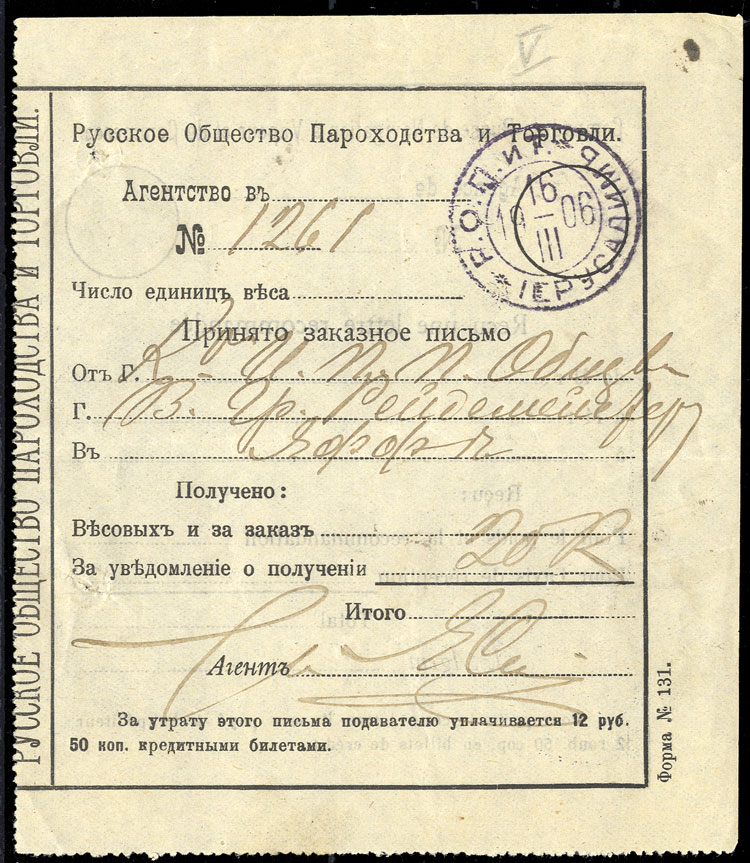 V
РУССКОЕ ОБЩЕСТВО ПАРОХОДСТВА И ТОРГОВЛИ.
Русское Общество Пароходства и Торговли.
Р.О.П.и Т. ІЕРУСАЛИМЪ
16
19 — 06
III
Агентство въ
№ 1261
Число единицъ вѣса
Принято заказное письмо
Отъ Г. К. И. П. П. Общева
Г. В. Гр. Рейдемейстеру
Въ Яффѣ
Получено:
Вѣсовыхъ и за заказъ 20 К
За увѣдомленіе о полученіи
Итого
Агентъ
За утрату этого письма подавателю уплачивается 12 руб.
50 коп. кредитными билетами.
Форма № 131.